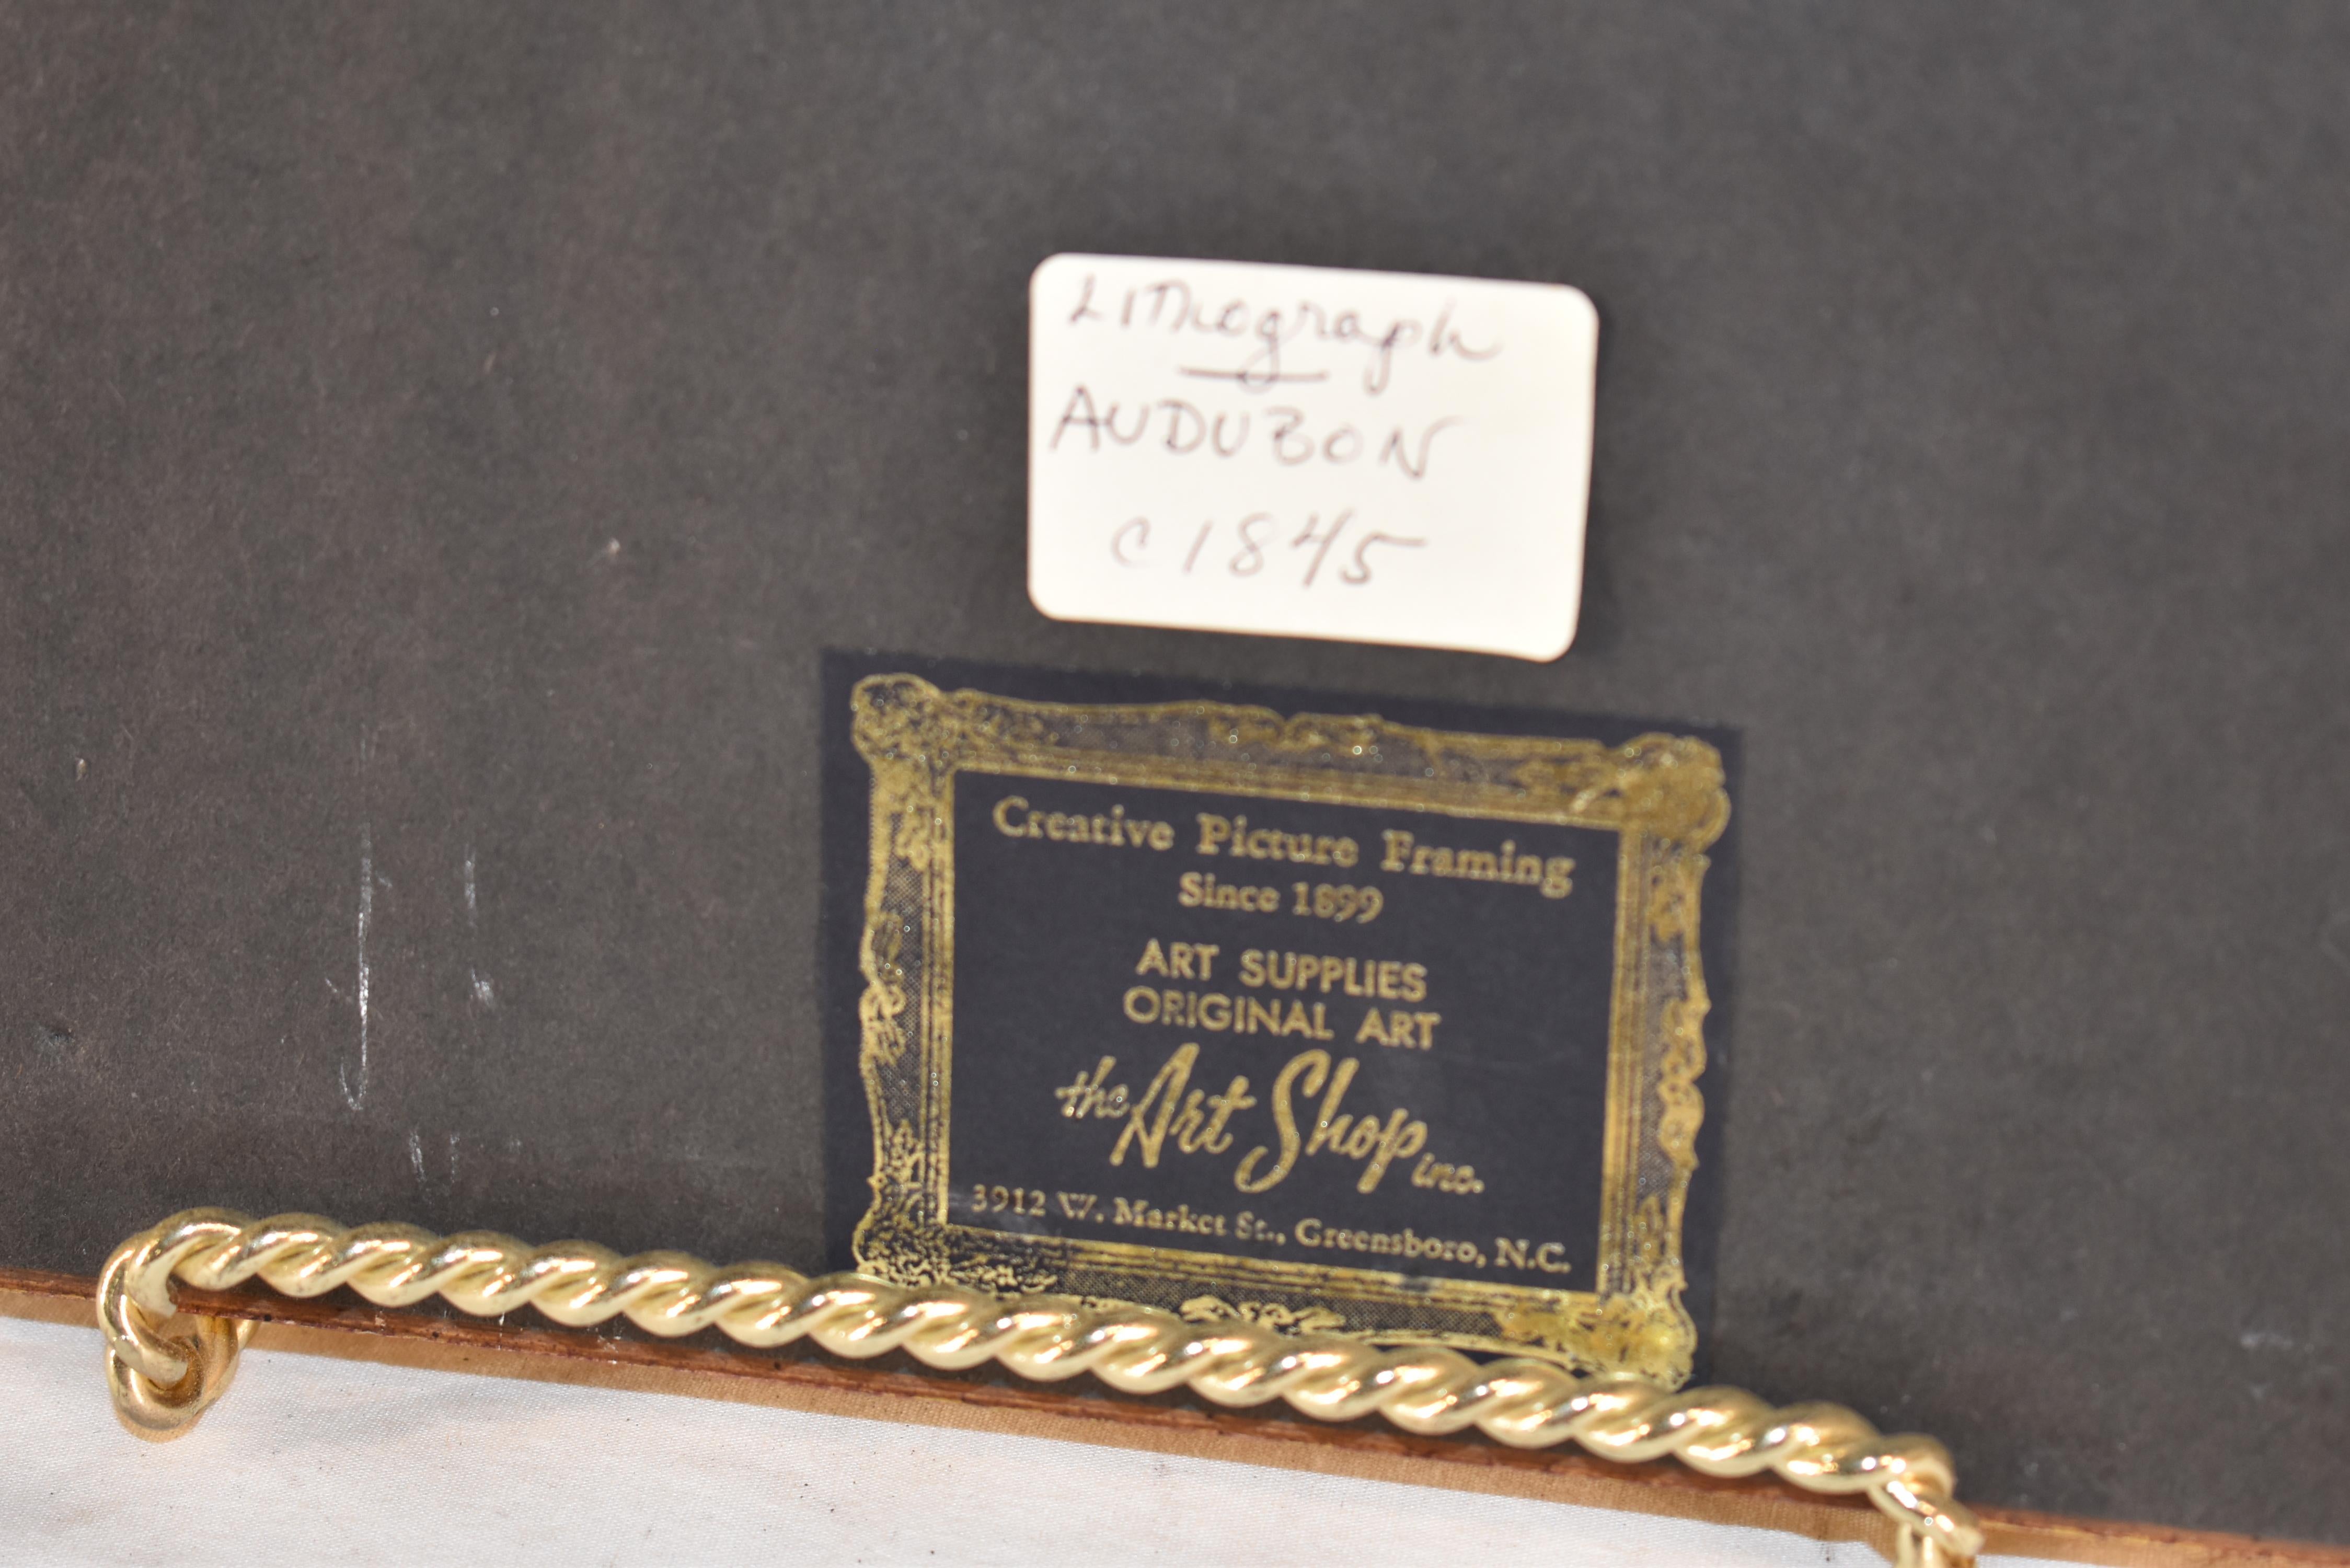 LiThograph
AUDUBON
c 1845
Creative Picture Framing
Since 1899
ART SUPPLIES
ORIGINAL ART
the Art Shop inc.
3912 W. Market St., Greensboro, N.C.